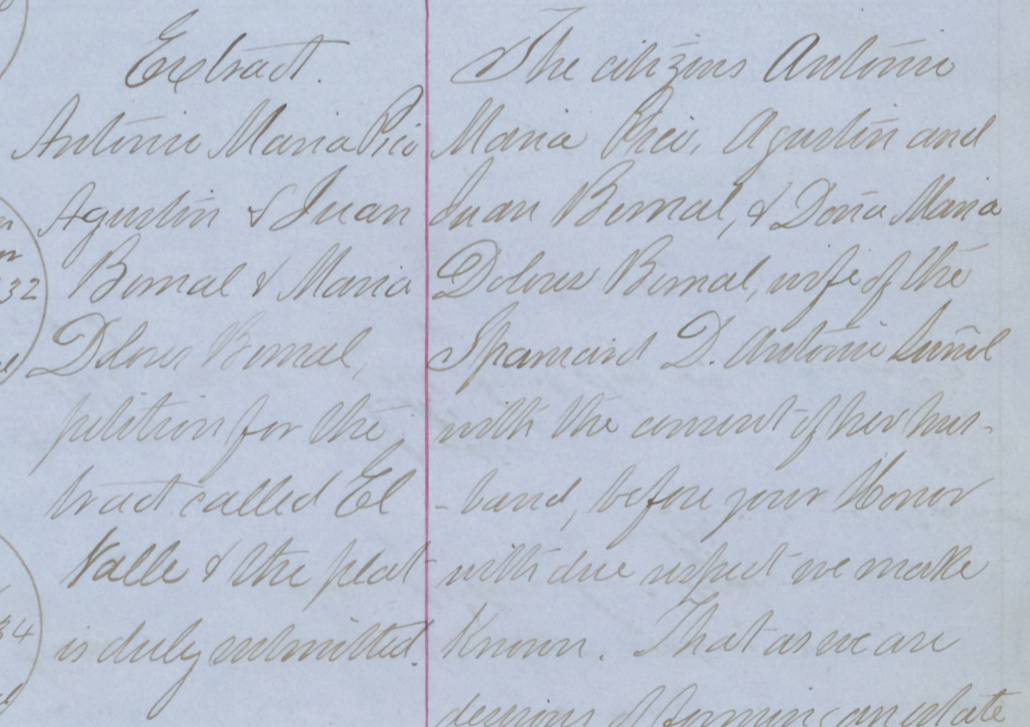 Extract.
Antonio Maria Pico
Agustin & Juan
Bernal & Maria
Dolores Bernal,
petition for the
tract called El
Valle & the plat
is duly submitted.
The citizens Antonio
Maria Pico, Agustin and
Juan Bernal, & Doña Maria
Dolores Bernal, wife of the
Spaniard D. Antonio Suñol
with the consent of her hus-
-band, before your Honor
with due respect we make
known. That as we are
desirous of forming an estate
32
34